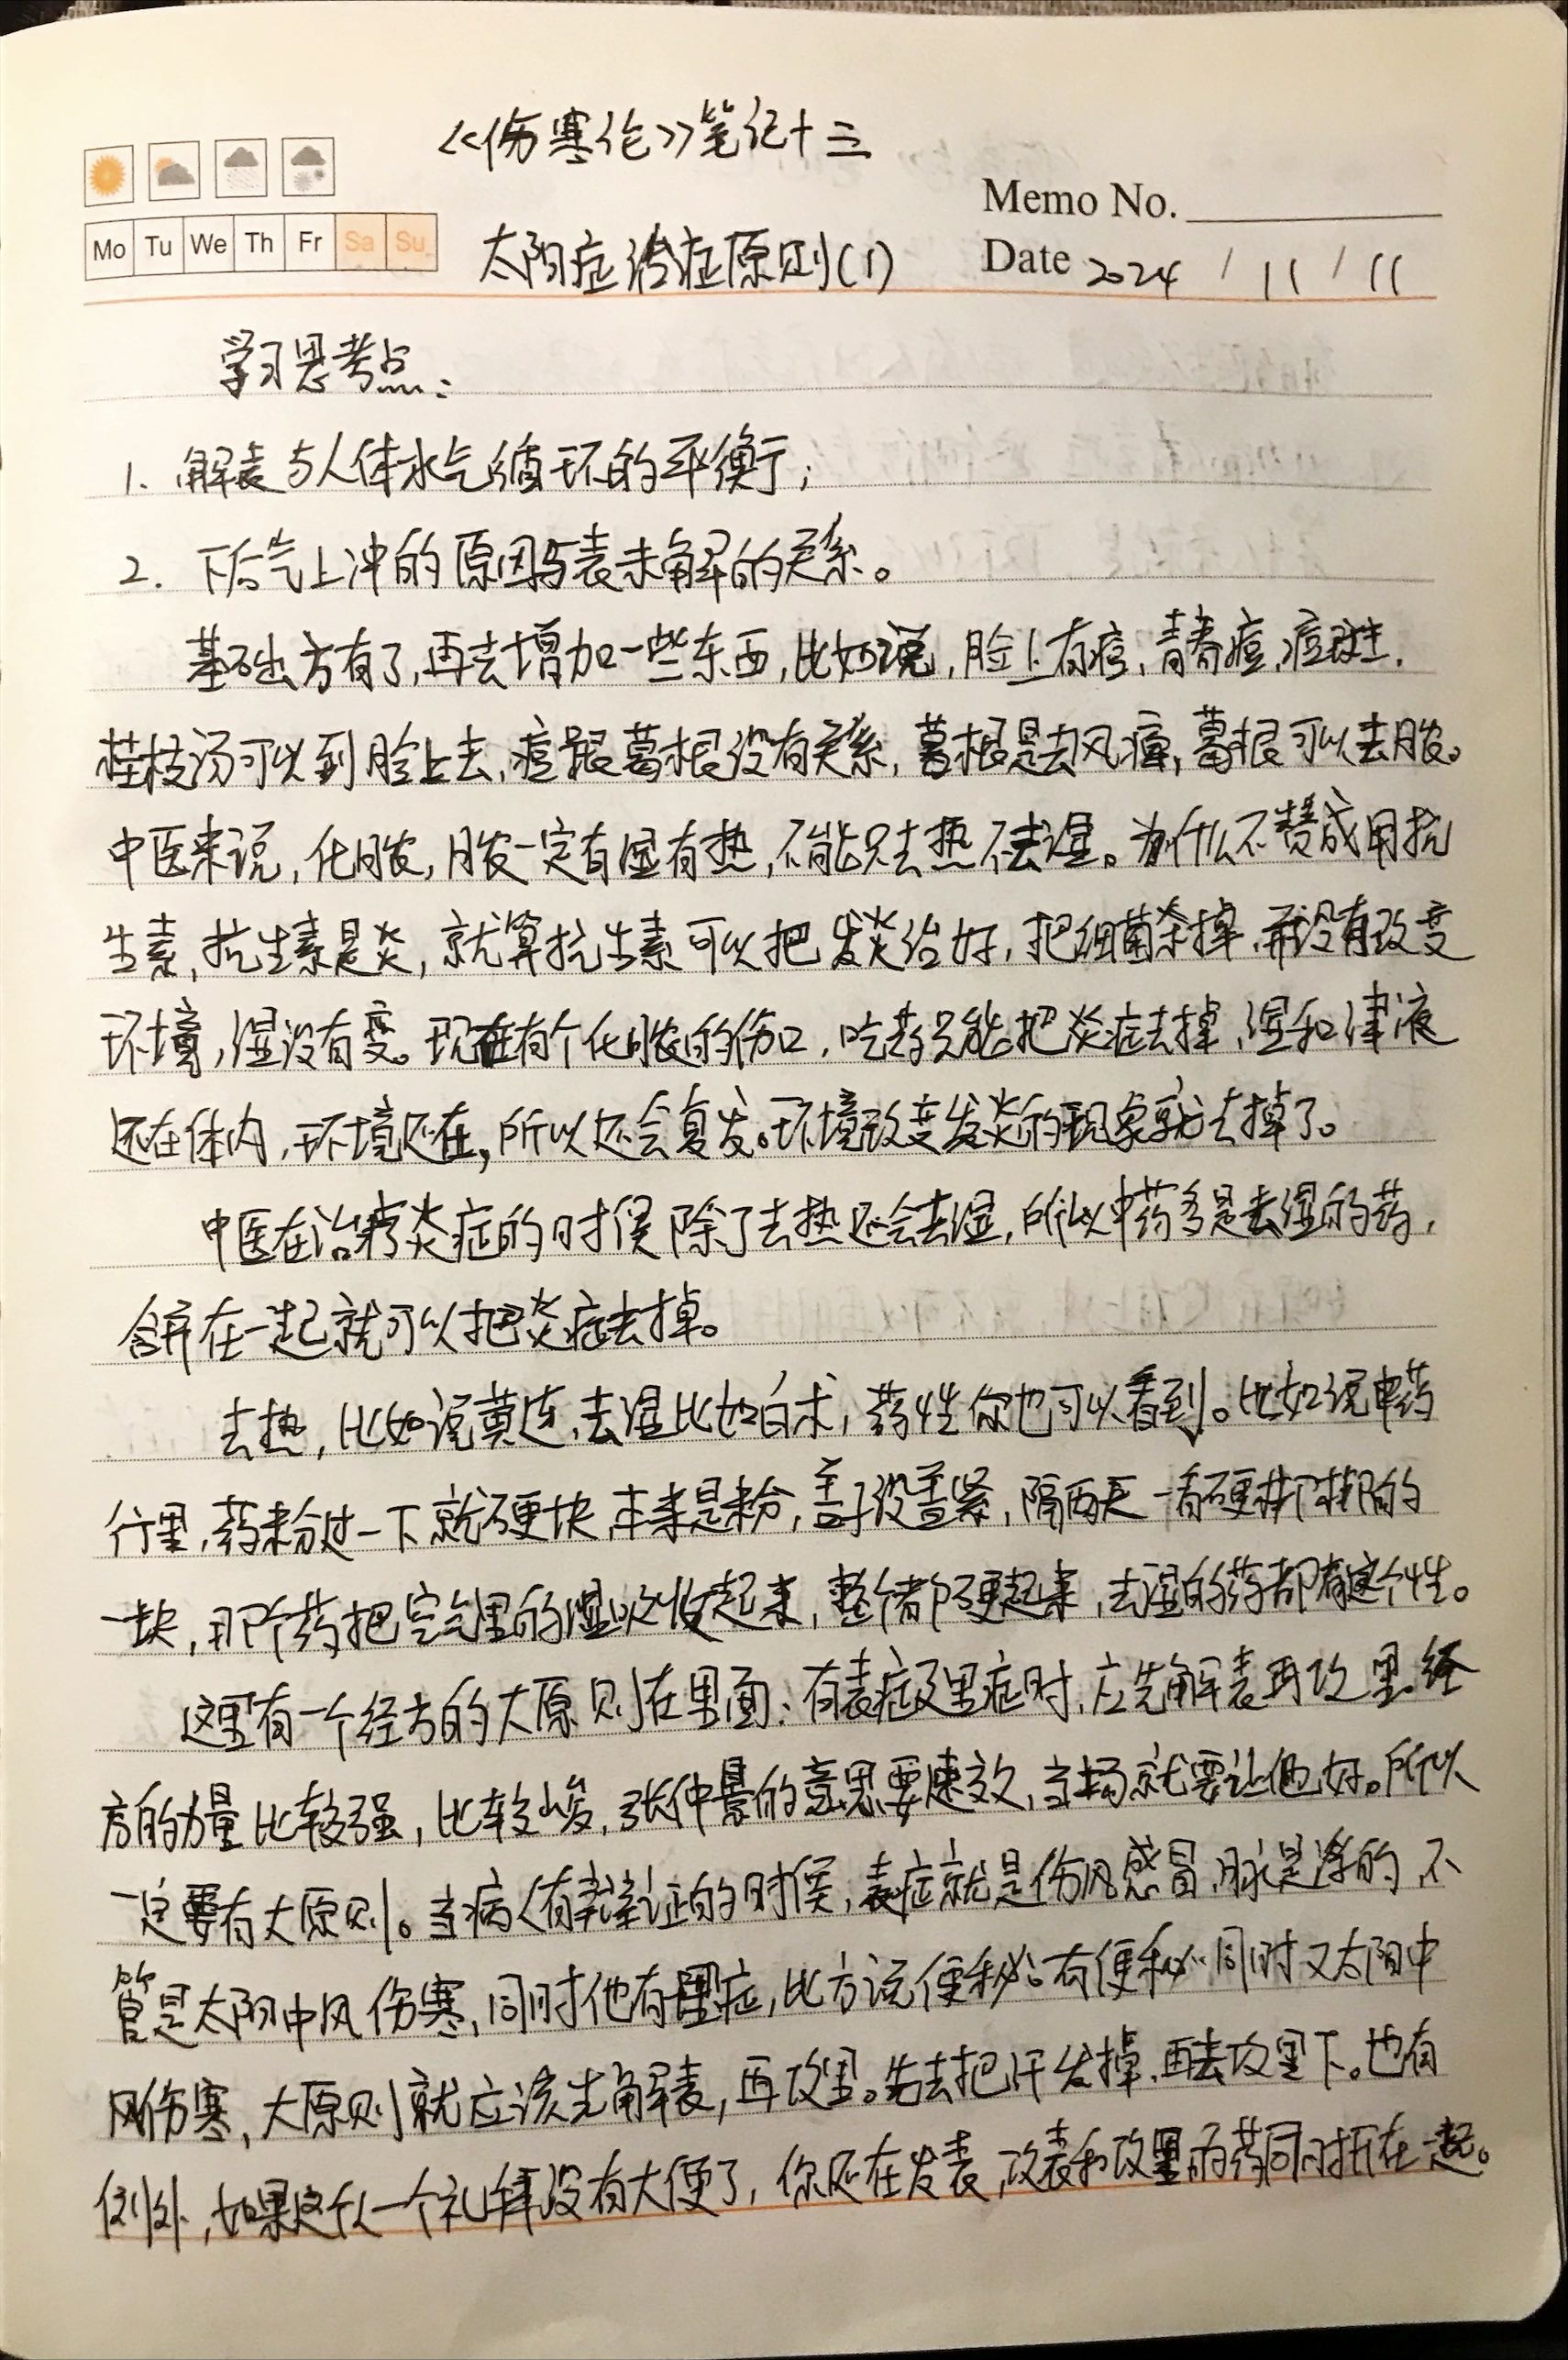 《伤寒论》笔记十三
Memo No.
Mo Tu We Th Fr Sa Su
太阳症治症原则(1)
Date 2024 / 11 / 11
学习思考点：
1. 解表与人体水气循环的平衡；
2. 下后气上冲的原因与表未解的关系。
基础方有了,再去增加一些东西,比如说,脸上有痘,青春痘,痘斑.
桂枝汤可以到脸上去,痘跟葛根没有关系,葛根是去风痹,葛根可以去脓。
中医来说,化脓,脓一定有湿有热,不能只去热不去湿。为什么不赞成用抗
生素,抗生素是炎,就算抗生素可以把发炎治好,把细菌杀掉,而没有改变
环境,湿没有变。现在有个化脓的伤口,吃药只能把炎症去掉,湿和津液
还在体内,环境还在,所以还会复发。环境改变发炎的现象就去掉了。
中医在治疗炎症的时候除了去热还会去湿,所以中药多是去湿的药,
合并在一起就可以把炎症去掉。
去热,比如说黄连,去湿比如白术,药性你也可以看到。比如说中药
行里,药粉过一下就硬块,本来是粉,盖子没盖紧,隔两天一看硬梆梆的
一块,那个药把空气里的湿吸收起来,整个都硬起来,去湿的药都有这个性。
这里有一个经方的大原则在里面:有表症及里症时,应先解表再攻里.经
方的力量比较强,比较峻,张仲景的意思要速效,当场就要让他好。所以
一定要有大原则。当病人有表证的时候,表症就是伤风感冒,脉是浮的,不
管是太阳中风伤寒,同时他有里症,比方说便秘。有便秘同时又太阳中
风伤寒,大原则就应该先解表,再攻里。先去把汗发掉,再去攻里下。也有
例外,如果这个人一个礼拜没有大便了,你还在发表,攻表和攻里的药同时开在一起。